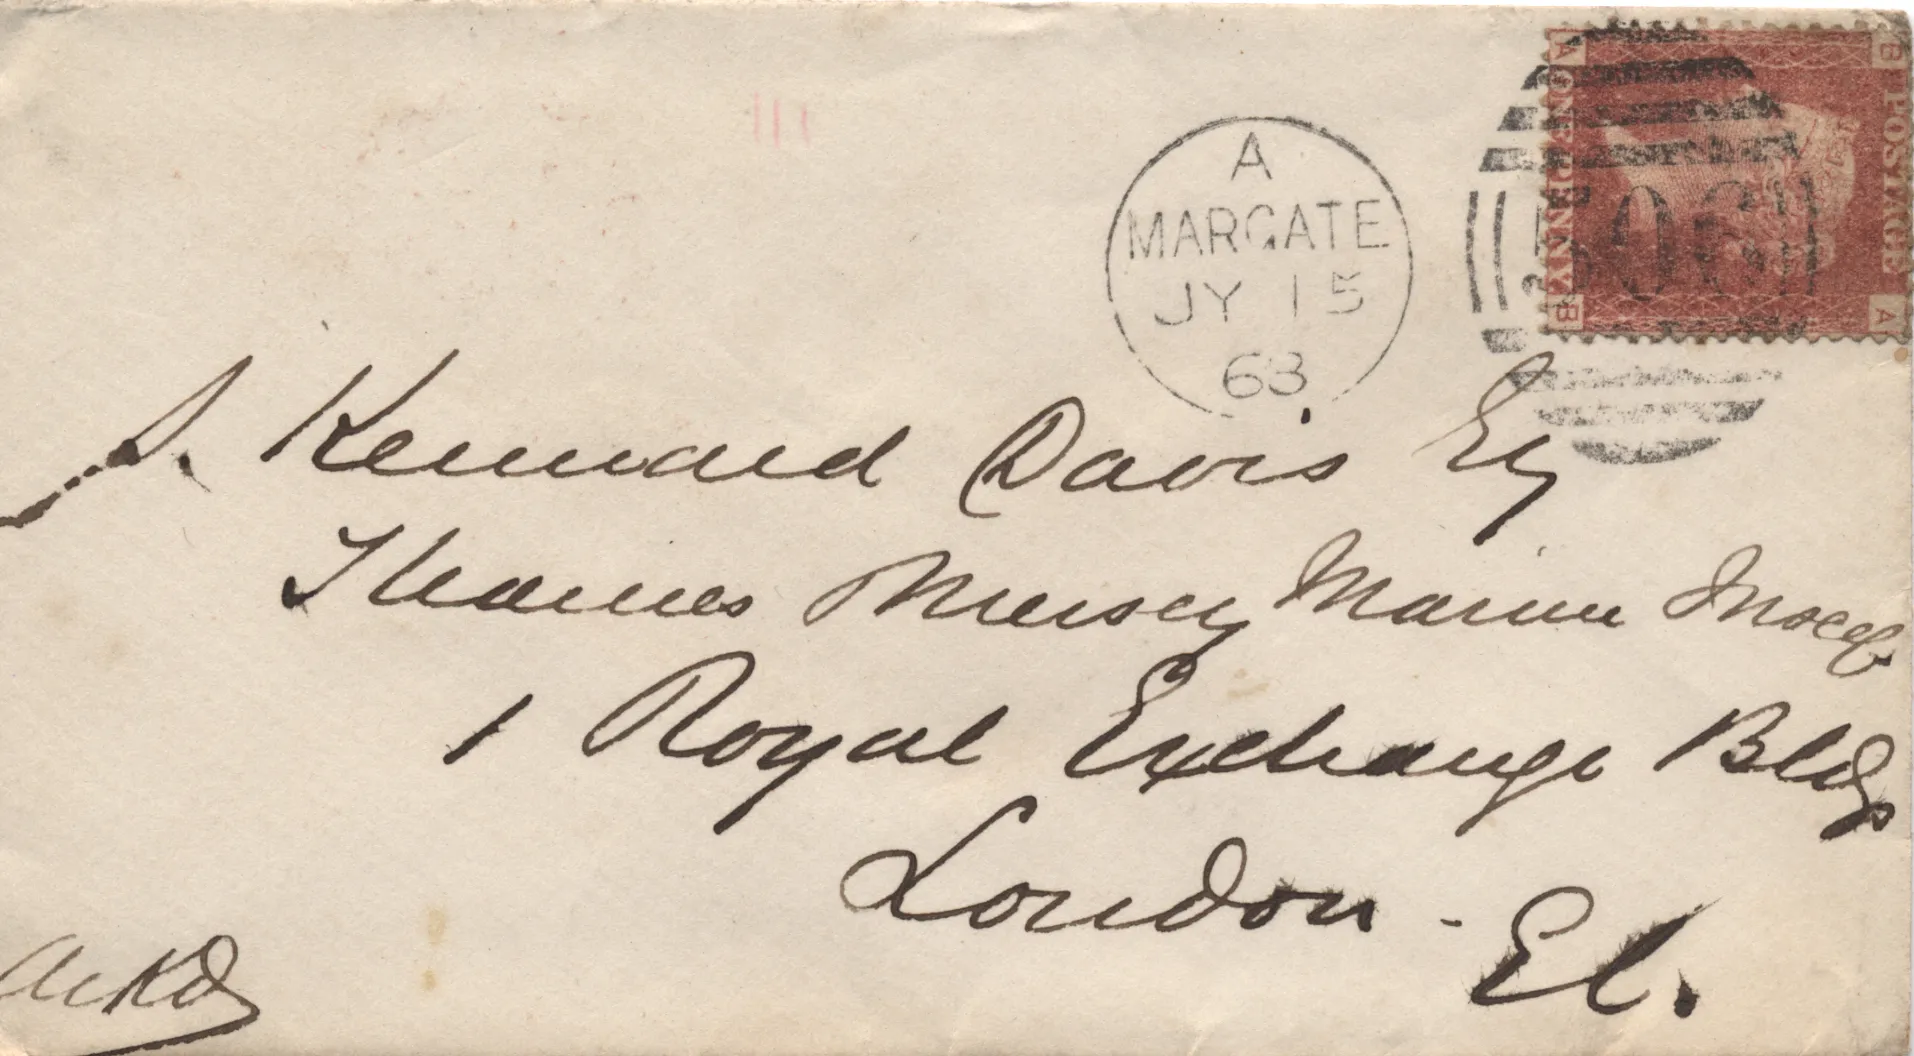 A
MARGATE
JY 15
63
506
A B
POSTAGE
ONE PENNY
B A
S. Kennard Davis Esq
Thames Mersey Marine Insce Co.
1 Royal Exchange Bldgs
London - EC.
AKD